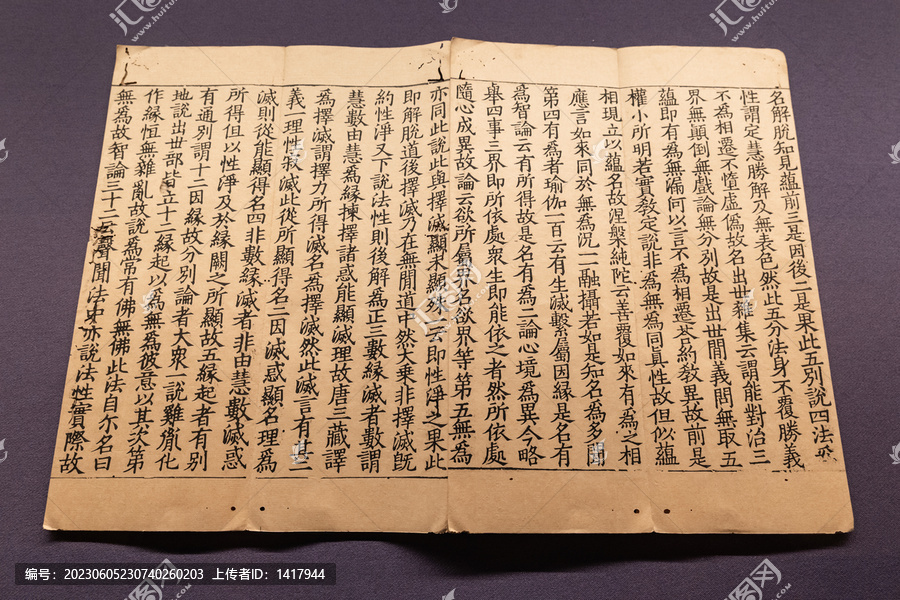 名解脫知見蘊前三是因後二是果此五別說四法
性謂定慧勝解及無表色然此五分法身不覆勝義
不為相遷不墮虛偽故名出世雜集云謂能對治三
界無顛倒無戲論無分別故是出世間義問無取五
蘊即有為無漏何以言不為相遷荅約教異故前是
權小所明若實教定說非為無為同真性故但似蘊
相現立以蘊名故涅槃純陀云善覆如來有為之相
應言如來同於無為況一一融攝若如是知名為多聞
第四有為者瑜伽一百云有生滅繫屬因緣是名有
為智論云有所得故是名有為二論心境為異今略
舉四事三界即所依處眾生即能依之者然所依處
隨心成異故論云欲所屬界名欲界等等第五無為
亦同此說此與擇滅顯末顯來云即性淨之果此
即解脫道後擇滅乃在無間道中然大乗非擇滅旣
約性淨又下說法性則後解為正三數緣滅者數謂
慧數由慧為緣揀擇諸惑能顯滅理故唐三藏譯
為擇滅謂擇力所得滅名為擇滅然此滅言有其二
義一理性寂滅此從所顯得名二因滅惑顯名理為
滅則從能顯得名四非數緣滅者非由慧數滅惑
所得但以性淨及於緣闕之所顯故五緣起者有別
有通別謂十二因緣故分別論者大衆一說雞胤化
地說出世部皆立十二緣起以為無為彼意以其次第
作緣恒無雜亂故說為常有佛無佛此法自尒名曰
無為故智論三十二云聲聞法中亦說法性實際故
编号：20230605230740260203 上传者ID：1417944